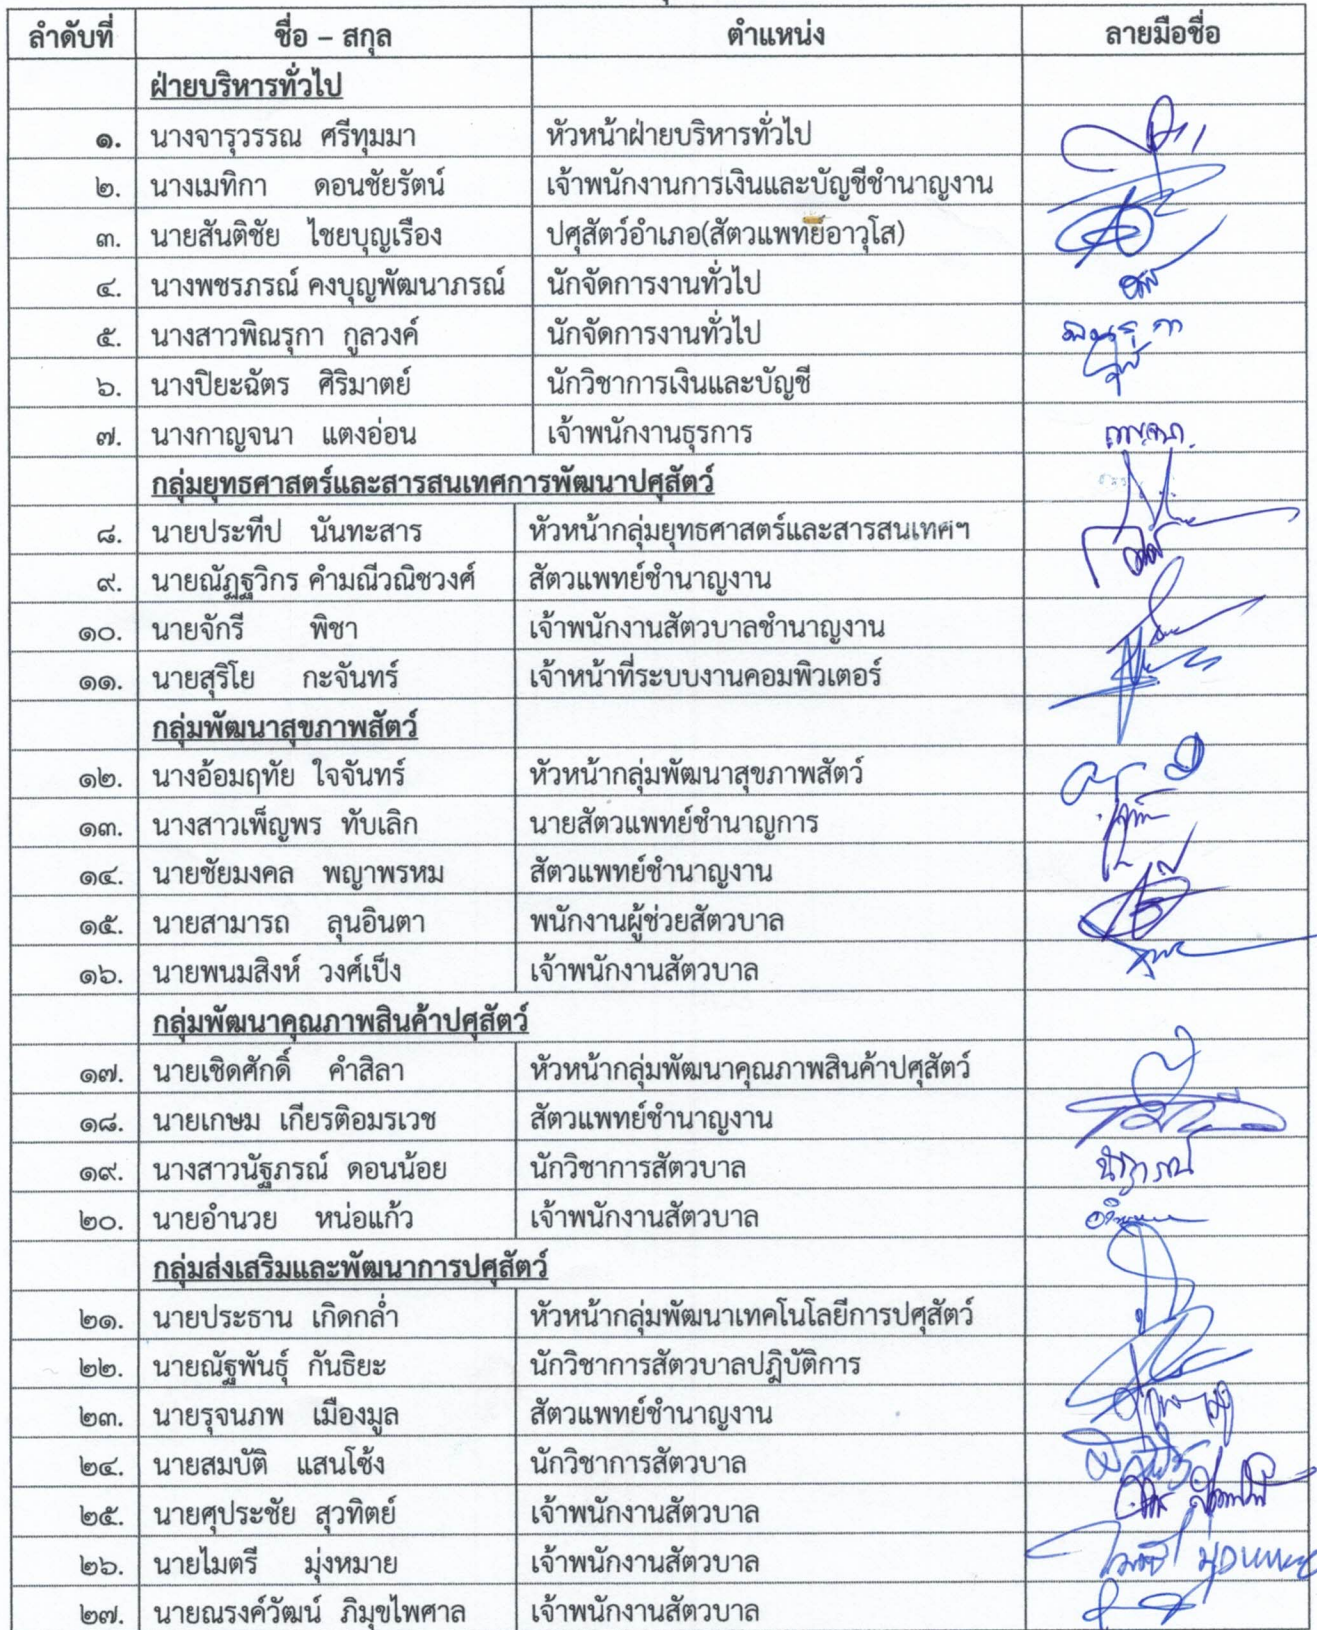 ลำดับที่ ชื่อ – สกุล ตำแหน่ง ลายมือชื่อ
ฝ่ายบริหารทั่วไป
๑. นางจารุวรรณ ศรีทุมมา หัวหน้าฝ่ายบริหารทั่วไป
๒. นางเมทิกา ดอนชัยรัตน์ เจ้าพนักงานการเงินและบัญชีชำนาญงาน
๓. นายสันติชัย ไชยบุญเรือง ปศุสัตว์อำเภอ(สัตวแพทย์อาวุโส)
๔. นางพชรภรณ์ คงบุญพัฒนาภรณ์ นักจัดการงานทั่วไป
๕. นางสาวพิณรุกา กูลวงค์ นักจัดการงานทั่วไป
๖. นางปิยะฉัตร ศิริมาตย์ นักวิชาการเงินและบัญชี
๗. นางกาญจนา แตงอ่อน เจ้าพนักงานธุรการ
กลุ่มยุทธศาสตร์และสารสนเทศการพัฒนาปศุสัตว์
๘. นายประทีป นันทะสาร หัวหน้ากลุ่มยุทธศาสตร์และสารสนเทศฯ
๙. นายณัฏฐวิกร คำมณีวณิชวงศ์ สัตวแพทย์ชำนาญงาน
๑๐. นายจักรี พิชา เจ้าพนักงานสัตวบาลชำนาญงาน
๑๑. นายสุริโย กะจันทร์ เจ้าหน้าที่ระบบงานคอมพิวเตอร์
กลุ่มพัฒนาสุขภาพสัตว์
๑๒. นางอ้อมฤทัย ใจจันทร์ หัวหน้ากลุ่มพัฒนาสุขภาพสัตว์
๑๓. นางสาวเพ็ญพร ทับเลิก นายสัตวแพทย์ชำนาญการ
๑๔. นายชัยมงคล พญาพรหม สัตวแพทย์ชำนาญงาน
๑๕. นายสามารถ ลุนอินตา พนักงานผู้ช่วยสัตวบาล
๑๖. นายพนมสิงห์ วงศ์เป็ง เจ้าพนักงานสัตวบาล
กลุ่มพัฒนาคุณภาพสินค้าปศุสัตว์
๑๗. นายเชิดศักดิ์ คำสิลา หัวหน้ากลุ่มพัฒนาคุณภาพสินค้าปศุสัตว์
๑๘. นายเกษม เกียรติอมรเวช สัตวแพทย์ชำนาญงาน
๑๙. นางสาวนัฐภรณ์ ดอนน้อย นักวิชาการสัตวบาล
๒๐. นายอำนวย หน่อแก้ว เจ้าพนักงานสัตวบาล
กลุ่มส่งเสริมและพัฒนาการปศุสัตว์
๒๑. นายประธาน เกิดกล่ำ หัวหน้ากลุ่มพัฒนาเทคโนโลยีการปศุสัตว์
๒๒. นายณัฐพันธุ์ กันธิยะ นักวิชาการสัตวบาลปฎิบัติการ
๒๓. นายรุจนภพ เมืองมูล สัตวแพทย์ชำนาญงาน
๒๔. นายสมบัติ แสนโซ้ง นักวิชาการสัตวบาล
๒๕. นายศุประชัย สุวทิตย์ เจ้าพนักงานสัตวบาล
๒๖. นายไมตรี มุ่งหมาย เจ้าพนักงานสัตวบาล
๒๗. นายณรงค์วัฒน์ ภิมุขไพศาล เจ้าพนักงานสัตวบาล